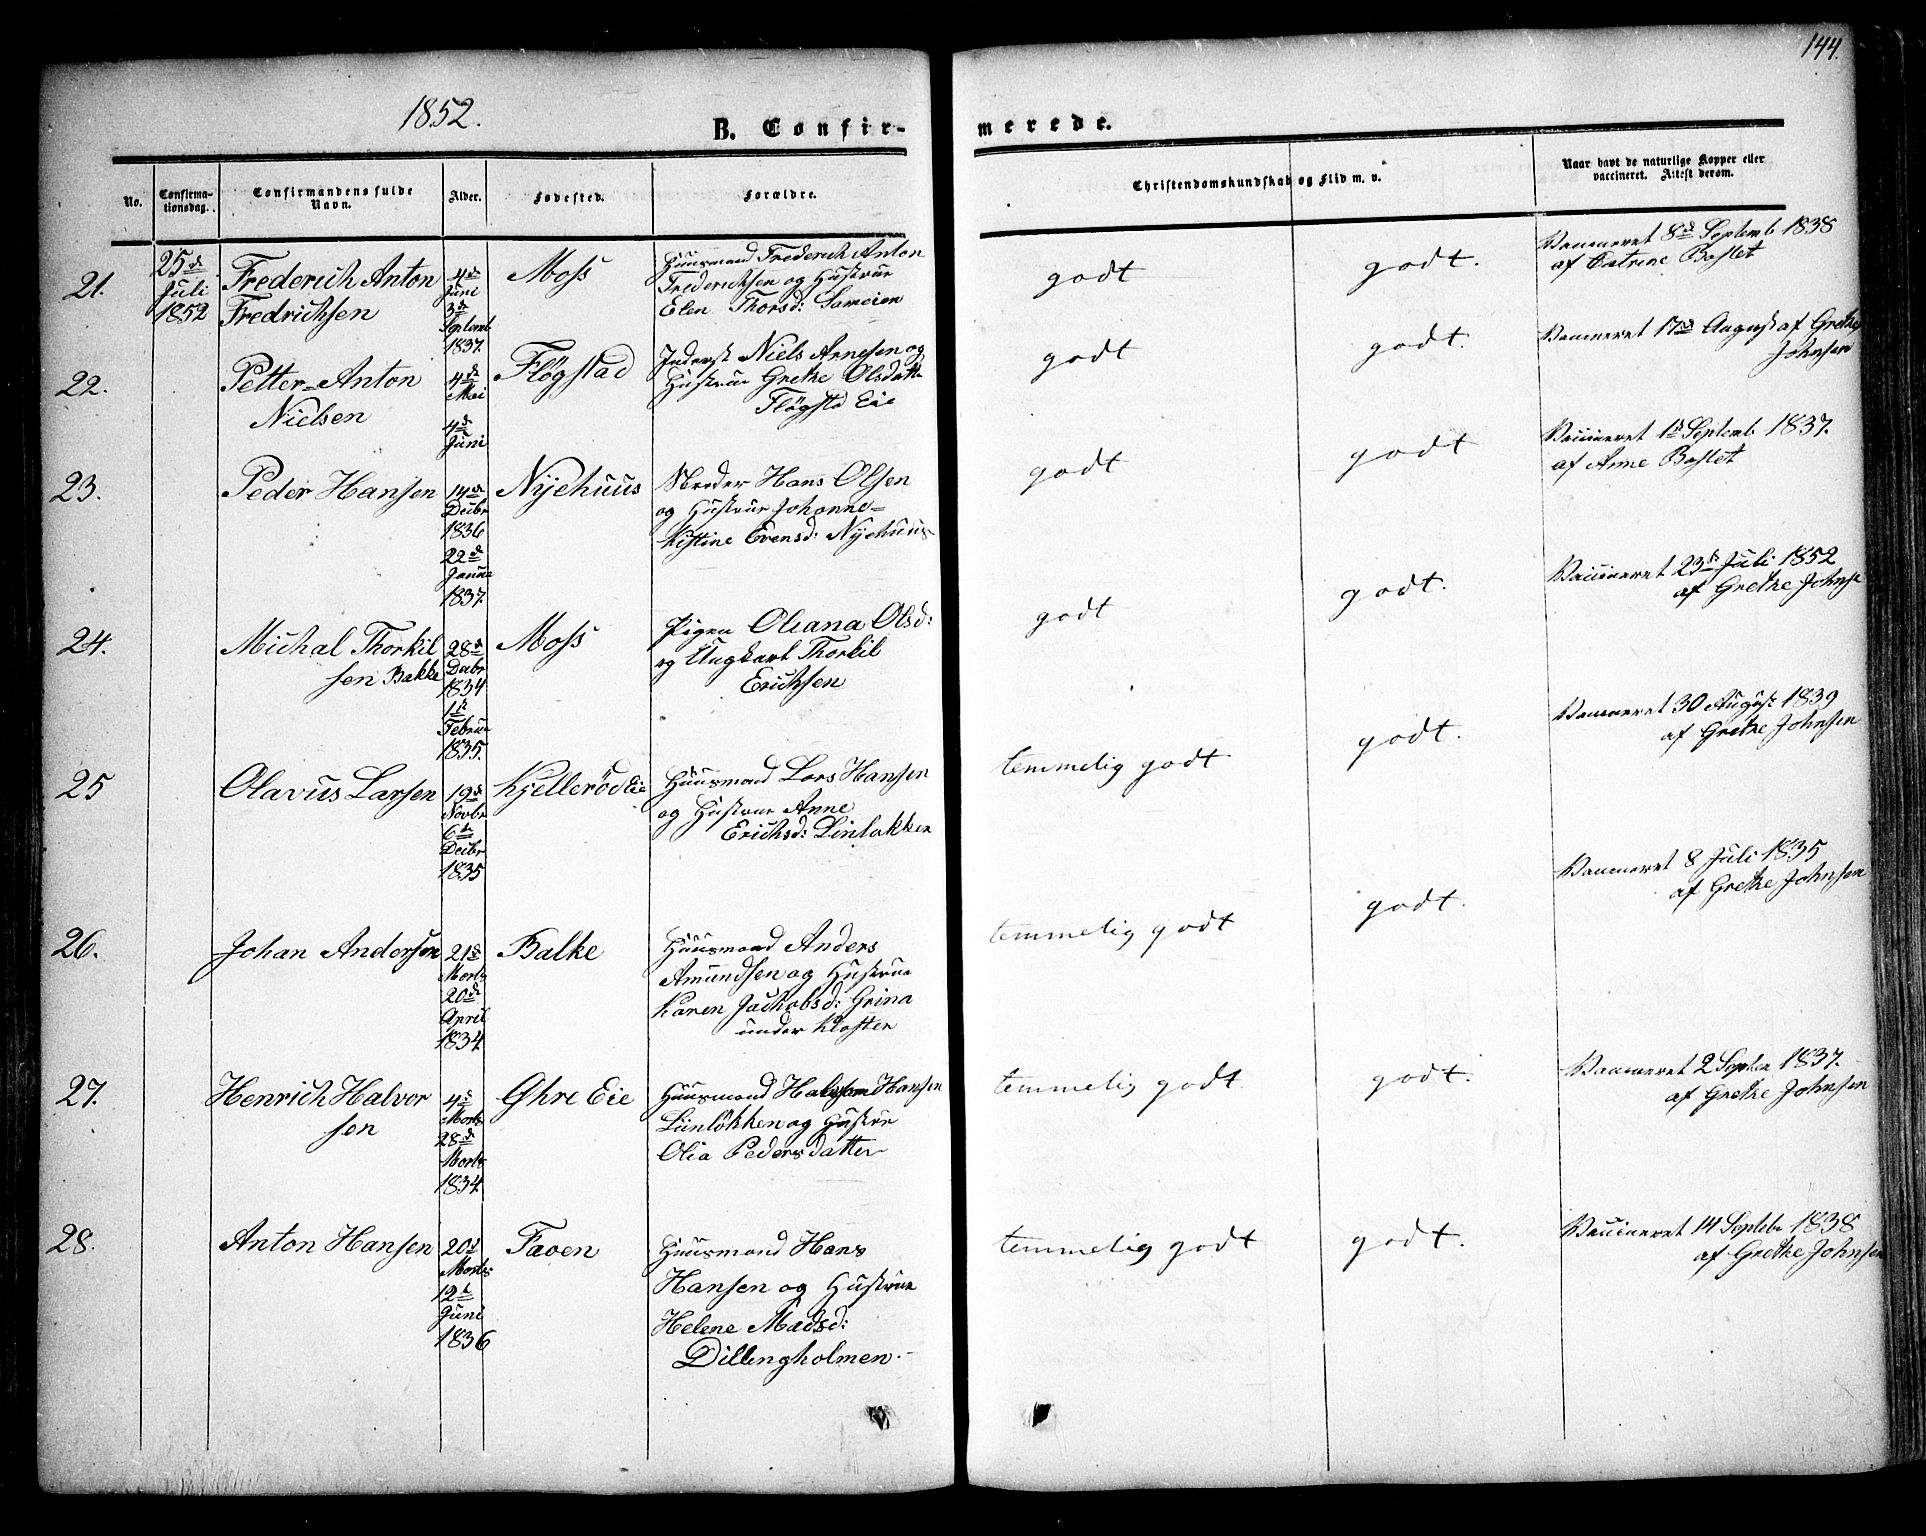 144.
1852.
B. Confir-
merede.
No.
Confirma-
tionsdag.
Confirmandens fulde
Navn.
Alder.
Fødested.
Forældre.
Christendomskundskab og Flid m. v.
Naar havt de naturlige Kopper eller
vaccineret. Attest derom.
21.
25de
Juli
1852
Frederich Anton
Fredrichsen
4de
Juni
3de
Septemb
1837.
Moss
Huusmand Frederich Anton
Frederichsen og Hustrue
Elen Thorsd:
godt
godt.
Vaccineret 8de Septemb 1838
af Catrine Basset
22.
Petter-Anton
Nielsen
4de
Mai
4de
Juni
Fløgstad
Niels Arnesen og
Hustrue Grethe Olsdatt
Fløgstd Eie
godt
godt.
Vaccineret 17de August af Grethe
Johnsen
23.
Peder Hansen
14de
Decbr
1836
22de
Janua
1837.
Nyehuus
Hans Olsen
og Hustrue Johanne-
Kistine Evensd: Nyehuus
godt
godt
Vaccineret 1de Septemb 1837.
af Anne Basset
24.
Michal Thorkil
sen Bakke
28de
Decbr
1834
1ste
Februa
1835.
Moss
Pigen Oleana Olsd:
og Ungkarl Thorkil
Erichsen
godt
godt.
Vaccineret 23de Juli 1852
af Grethe Johnse
25
Olavus Larsen
19de
Novbr
6te
Decbr
1835
Kjellerød Eie
Huusmand Lars Hansen
og Hustrue Anne
Erichsd: Linløkken
temmelig godt
godt.
Vaccineret 30 August 1839
af Grethe Johnsen
26.
Johan Andersen
21de
Marts
20de
April
1834.
Balke
Huusmand Anders
Amundsen og Hustrue
Karen Jachobsd: Grina
under Kloster
temmelig godt
godt.
Vaccineret 8 Juli 1835
af Grethe Johnsen
27.
Henrich Halvor
sen
4de
Marts
28de
Marts
1834.
Øhre Eie
Huusmand Hansen
Linløkken og Hustrue
Olia Pedersdatter
temmelig godt
godt.
Vaccineret 2 Septbr 1837.
af Grethe Johnsen
28.
Anton Hansen
20de
Marts
12te
Juni
1836
Faven
Huusmand Hans
Hansen og Hustrue
Helene Madsd:
Dillingholmen.
temmelig godt
godt.
Vaccineret 14 Septebr 1838
af Grethe Johnsen